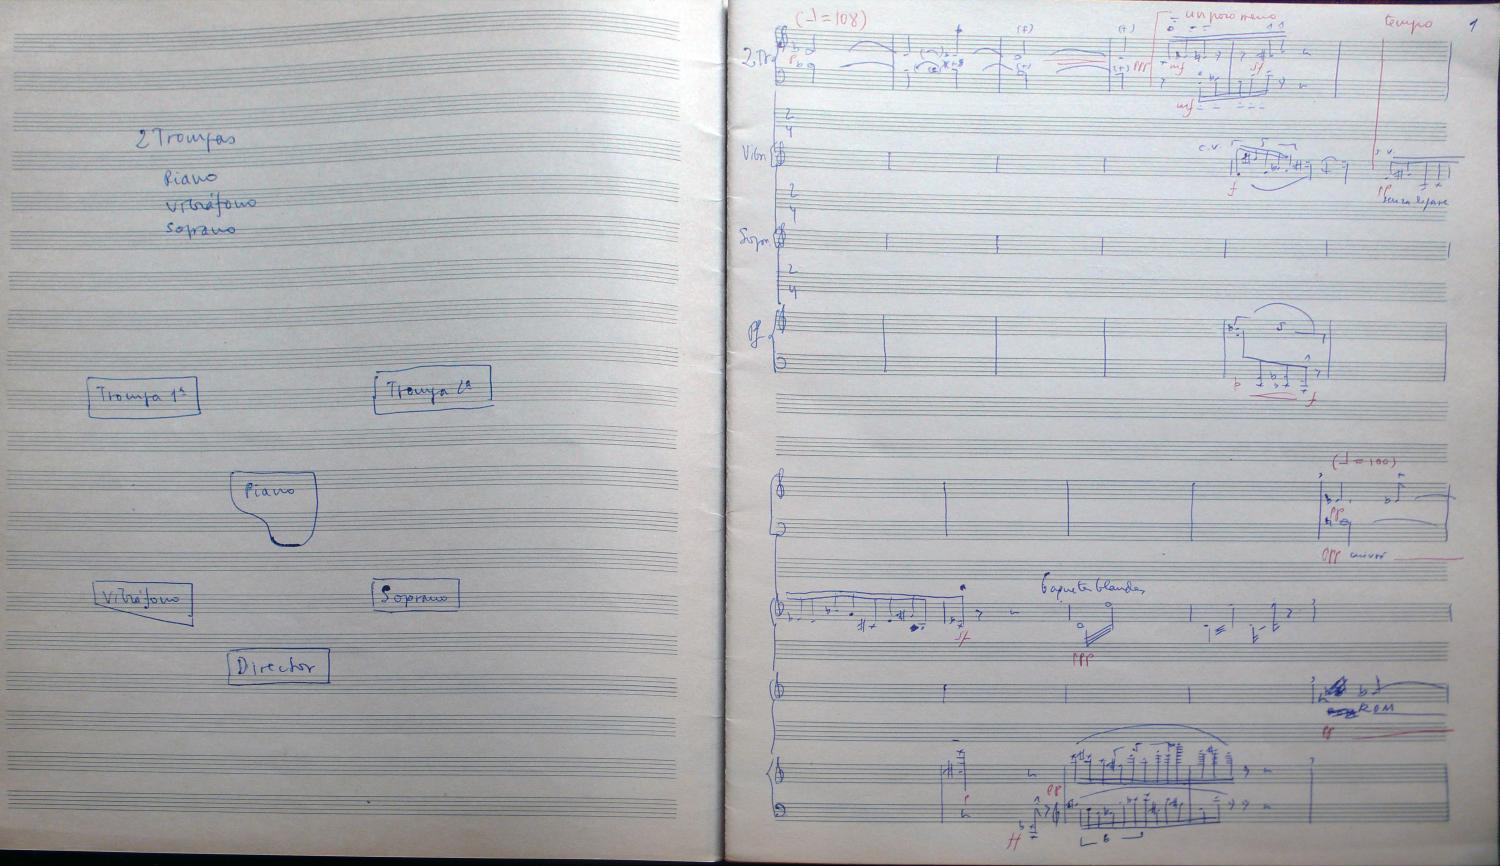 2 Trompas
Piano
Vibráfono
Soprano
Trompa 1ª
Trompa 2ª
Piano
Vibráfono
Soprano
Director
(♩=108)
un poco meno
tempo
1
2 Tr
ppp
mf
sf
mf
2
4
Vibr
c.v.
5
f
pp
senza
2
4
Sopr.
2
4
Pf
5
p
f
(♩=100)
pp
ppp
Baquetas blandas
sf
ppp
pp
5
p
pp
ff
6